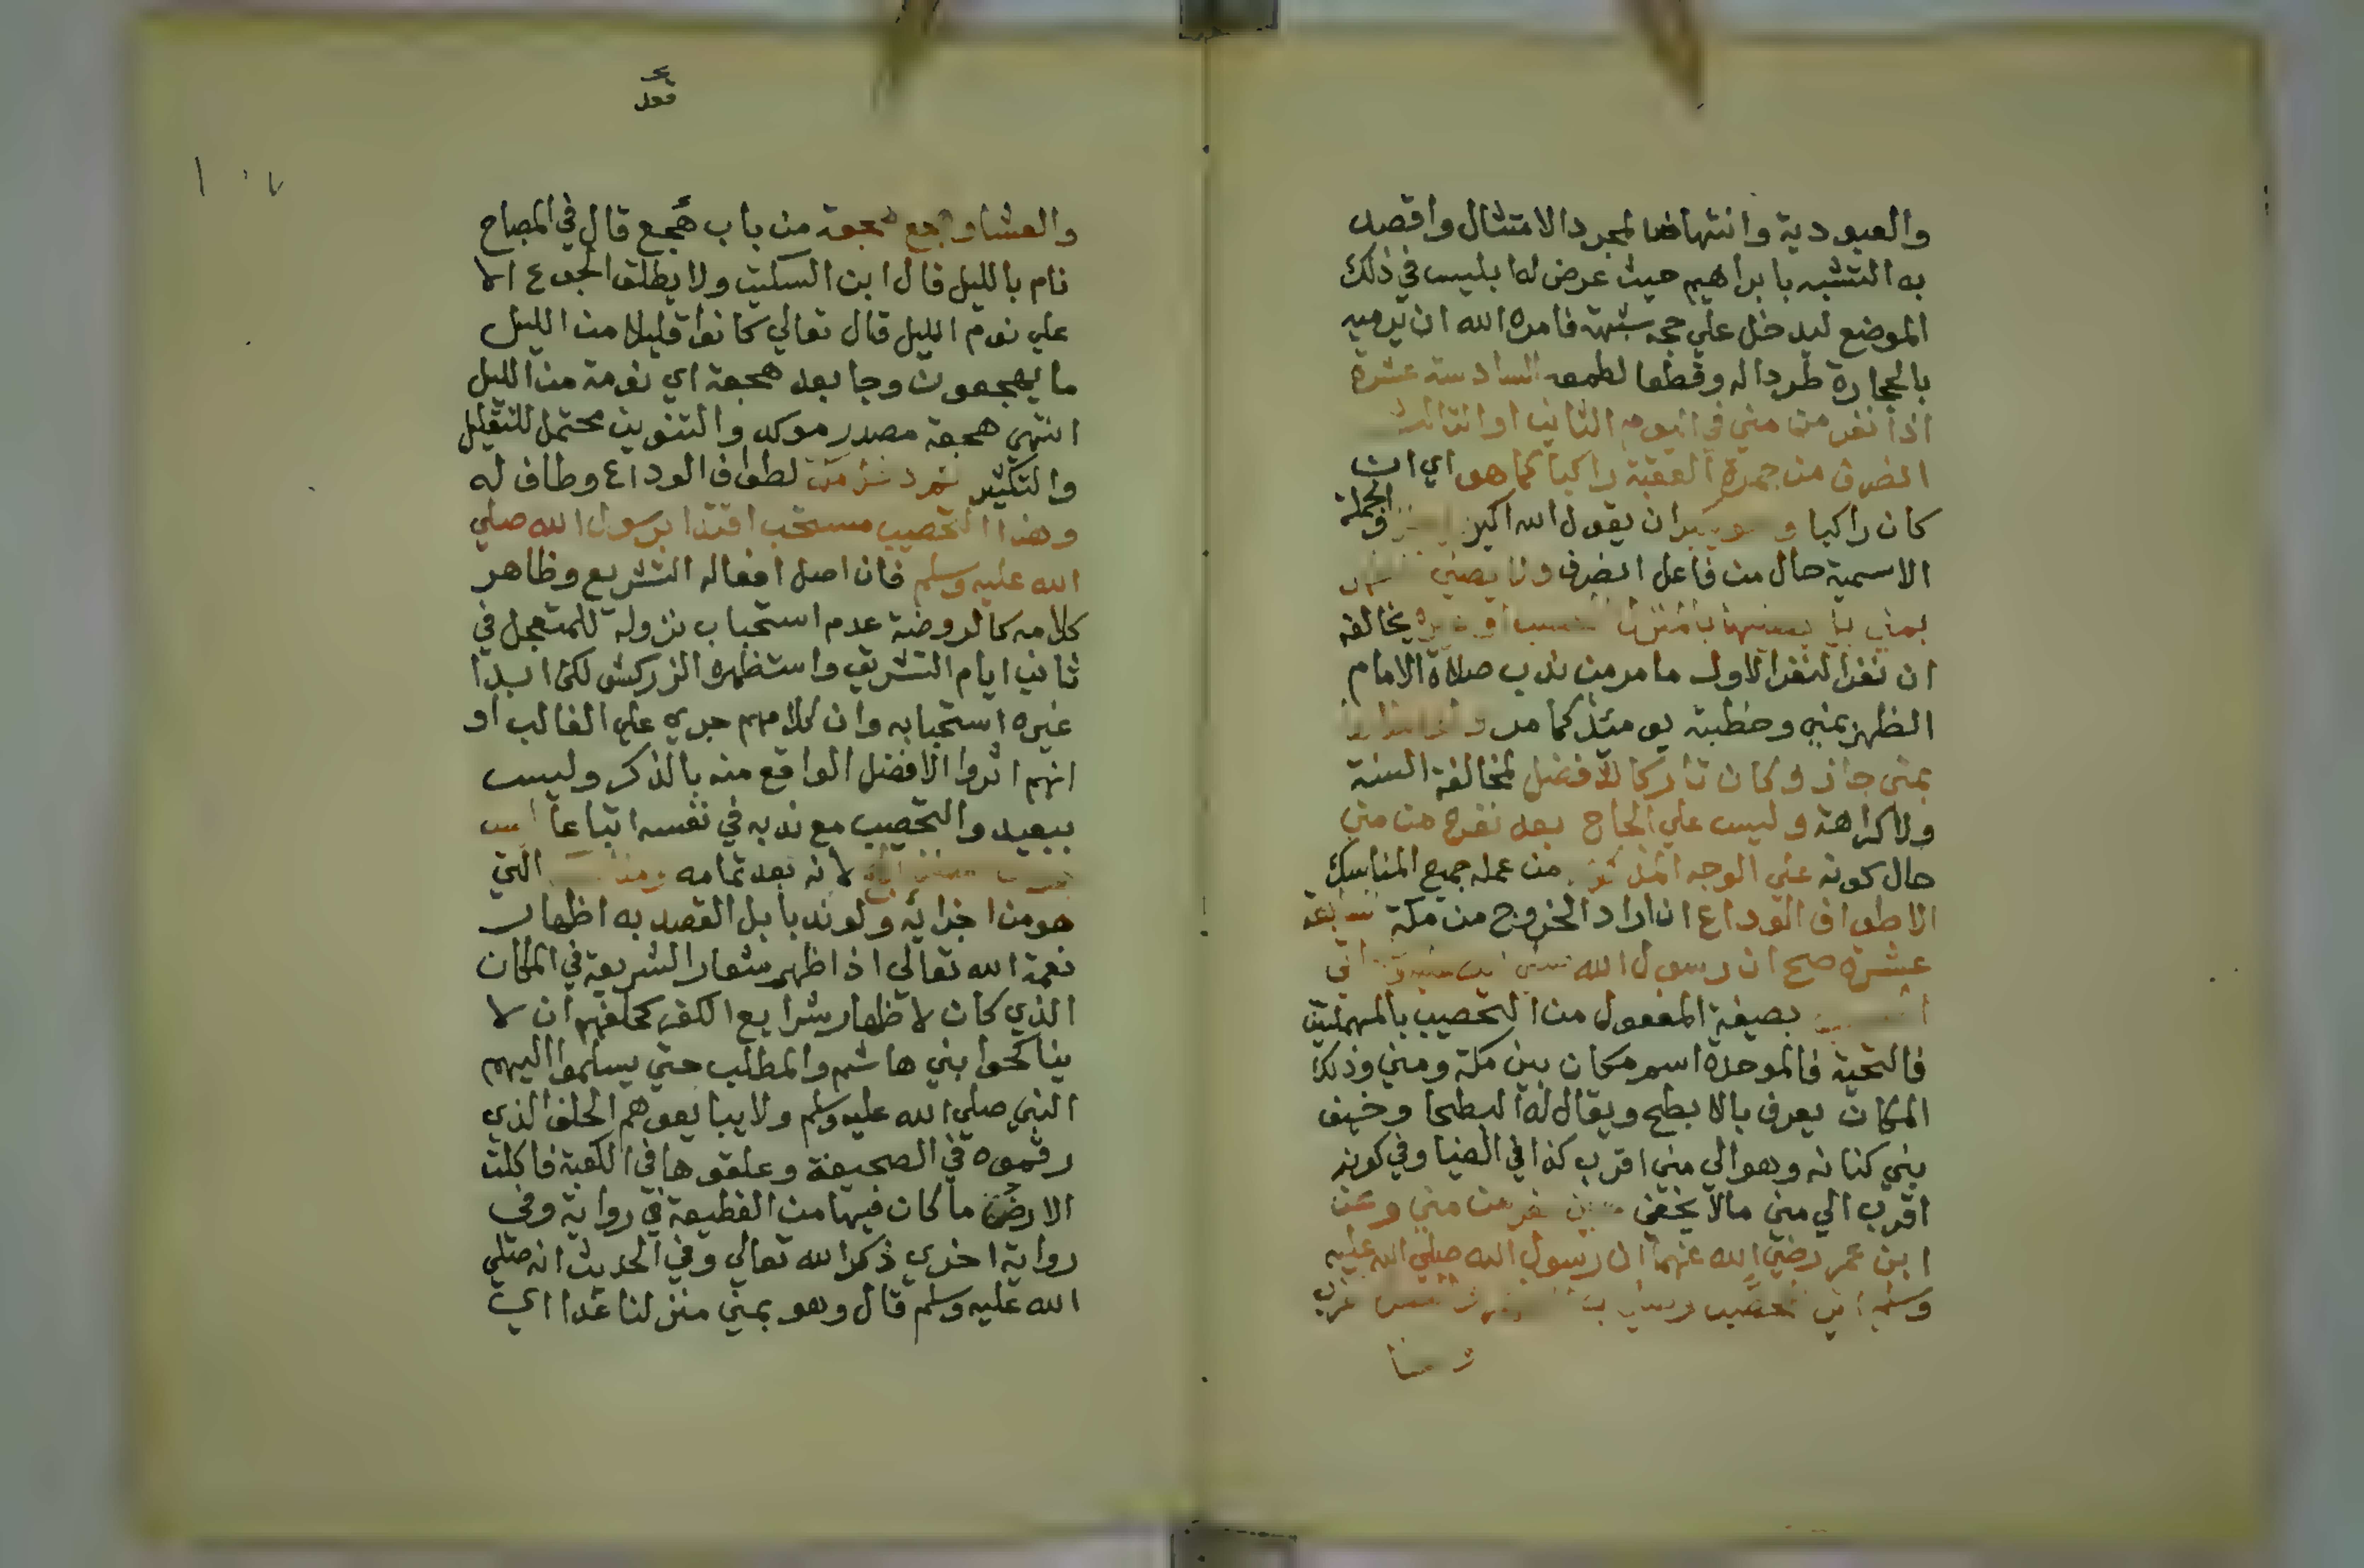 والعبودية وانتهاضا لمجرد الامتثال واقصد
به التشبه بابراهيم حيث عرض له ابليس في ذلك
الموضع ليدخل علي حجه شبهة فامره الله ان يرميه
بالحجارة طردا له وقطعا لطمعه السادسة عشرة
اذا نفر من مني في اليوم الثاني او الثالث
انصرف من جمرة العقبة راكبا كما هو اي ان
كان راكبا وهو يكبر ان يقول الله اكبر والجملة
الاسمية حال من فاعل انصرف ولا يصلي
بمني بل يصليها بالمنزل او غيره يخالفه
ان نفر النفر الاول ما مر من ندب صلاة الامام
الظهر بمني وخطبته يومئذ كما مر
بمني جاز وكان تاركا للافضل لمخالفة السنة
ولا كراهة وليس علي الحاج بعد نفره من مني
حال كونه علي الوجه المذكور من عمله جميع المناسك
الا طواف الوداع ان اراد الخروج من مكة السابعة
عشرة صح ان رسول الله اتي
بصيغة المفعول من التحصيب بالمهملتين
فالتحية فالموحدة اسم مكان بين مكة ومني وذلك
المكان يعرف بالابطح ويقال له البطحا وخيف
بني كنانه وهو الي مني اقرب كذا في الضيا وفي كونه
اقرب الي مني مالا يخفي حين نفر من مني وعن
ابن عمر رضي الله عنهما ان رسول الله صلي الله عليه
وسلم اتي المحصب
والعشا وهجع هجعة من باب هجع قال في المصباح
نام بالليل قال ابن السكيت ولا يطلق الهجوع الا
علي نوم الليل قال تعالي كانوا قليلا من الليل
ما يهجعون وجا بعد هجعة اي نومة من الليل
انتهي هجعة مصدر موكد والتنوين محتمل للتقليل
والتكثير ثم دخل مكة لطواف الوداع وطاف له
وهذا التحصيب مستحب اقتدا برسول الله صلي
الله عليه وسلم فان اصل افعاله التشريع وظاهر
كلامه كالروضة عدم استحباب نزوله للمتعجل في
ثاني ايام التشريق واستظهره الزركشي لكن ابدا
غيره استحبابه وان كلامهم جري علي الغالب او
انهم اثروا الافضل الواقع منه بالذكر وليس
ببعيد والتحصيب مع ندبه في نفسه اتباعا ليس
لانه بعد تمامه التي
هو من اجزائه ولو ندبا بل القصد به اظهار
نعمة الله تعالي اذ اظهر شعار الشريعة في المكان
الذي كان لاظهار شرايع الكفر كحلفهم ان لا
يناكحوا بني هاشم والمطلب حتي يسلموا اليهم
النبي صلي الله عليه وسلم ولا يبايعوهم الحلف الذي
رقموه في الصحيفة وعلقوها في الكعبة فاكلت
الارضة ما كان فيها من القطيعة في رواية وفي
رواية اخري ذكر الله تعالي وفي الحديث انه صلي
الله عليه وسلم قال وهو بمني منزلنا غدا اي